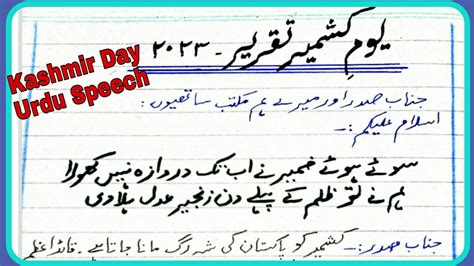 Kashmir Day
Urdu Speech
یومِ کشمیر تقریر ۔ ۲۰۲۳
جنابِ صدر اور میرے ہم مکتب ساتھیوں:
اسلام علیکم:۔
سوئے ہوئے ضمیر نے اب تک دروازہ نہیں کھولا
ہم نے تو ظلم کے پہلے دن زنجیرِ عدل ہلا دی
جناب صدر:۔ کشمیر کو پاکستان کی شہ رگ مانا جاتا ہے۔ قائداعظم